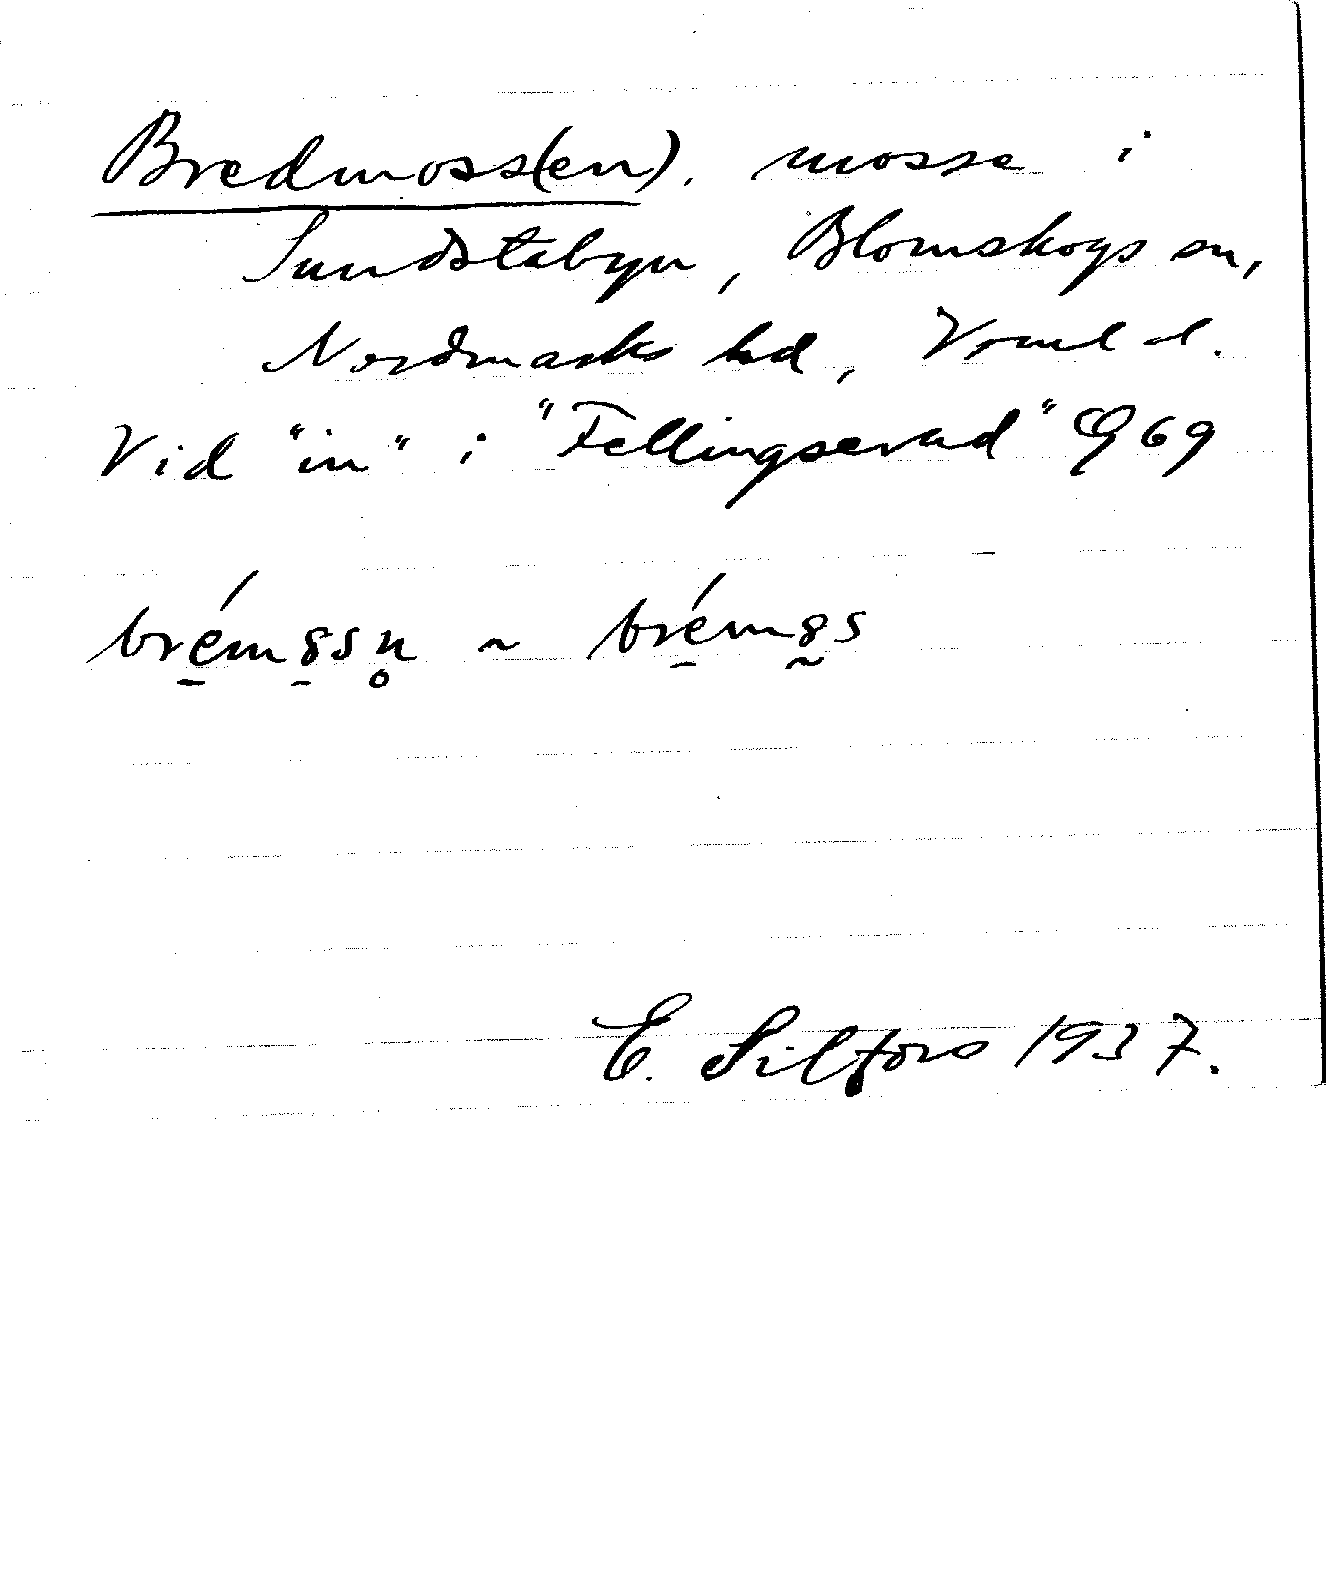 Bredmoss(en). mosse i
Sundstabyn, Blomskogs sn,
Nordmarks hd, Vrml d.
Vid "in" i "Fellingserud" EG 69
brémɞsn̥ ~ brémɞs
E. Silfors 1937.